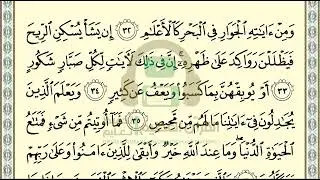 وَمِنْ ءَايَـٰتِهِ ٱلْجَوَارِ فِى ٱلْبَحْرِ كَٱلْأَعْلَـٰمِ ٣٢ إِن يَشَأْ يُسْكِنِ ٱلرِّيحَ
فَيَظْلَلْنَ رَوَاكِدَ عَلَىٰ ظَهْرِهِۦٓ إِنَّ فِى ذَٰلِكَ لَـَٔايَـٰتٍ لِّكُلِّ صَبَّارٍ شَكُورٍ
٣٣ أَوْ يُوبِقْهُنَّ بِمَا كَسَبُوا۟ وَيَعْفُ عَن كَثِيرٍ ٣٤ وَيَعْلَمَ ٱلَّذِينَ
يُجَـٰدِلُونَ فِىٓ ءَايَـٰتِنَا مَا لَهُم مِّن مَّحِيصٍ ٣٥ فَمَآ أُوتِيتُم مِّن شَىْءٍ فَمَتَـٰعُ
ٱلْحَيَوٰةِ ٱلدُّنْيَا وَمَا عِندَ ٱللَّهِ خَيْرٌ وَأَبْقَىٰ لِلَّذِينَ ءَامَنُوا۟ وَعَلَىٰ رَبِّهِمْ